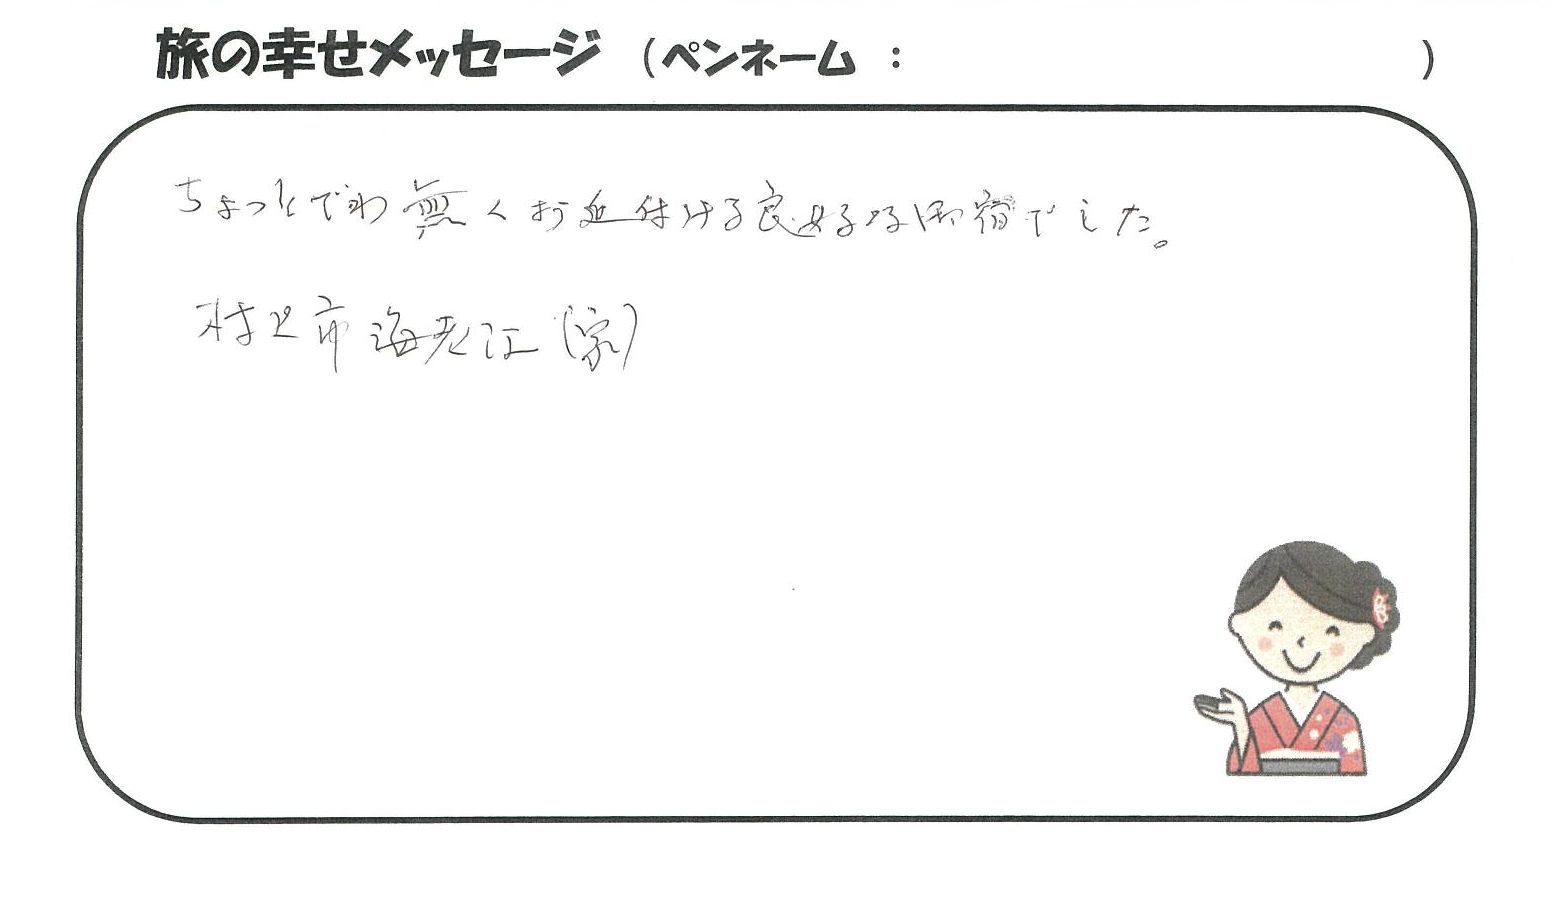 旅の幸せメッセージ (ペンネーム : )
ちょっとでわ無くお近付ける良好なる御宿でした。
村上市海老江(家)